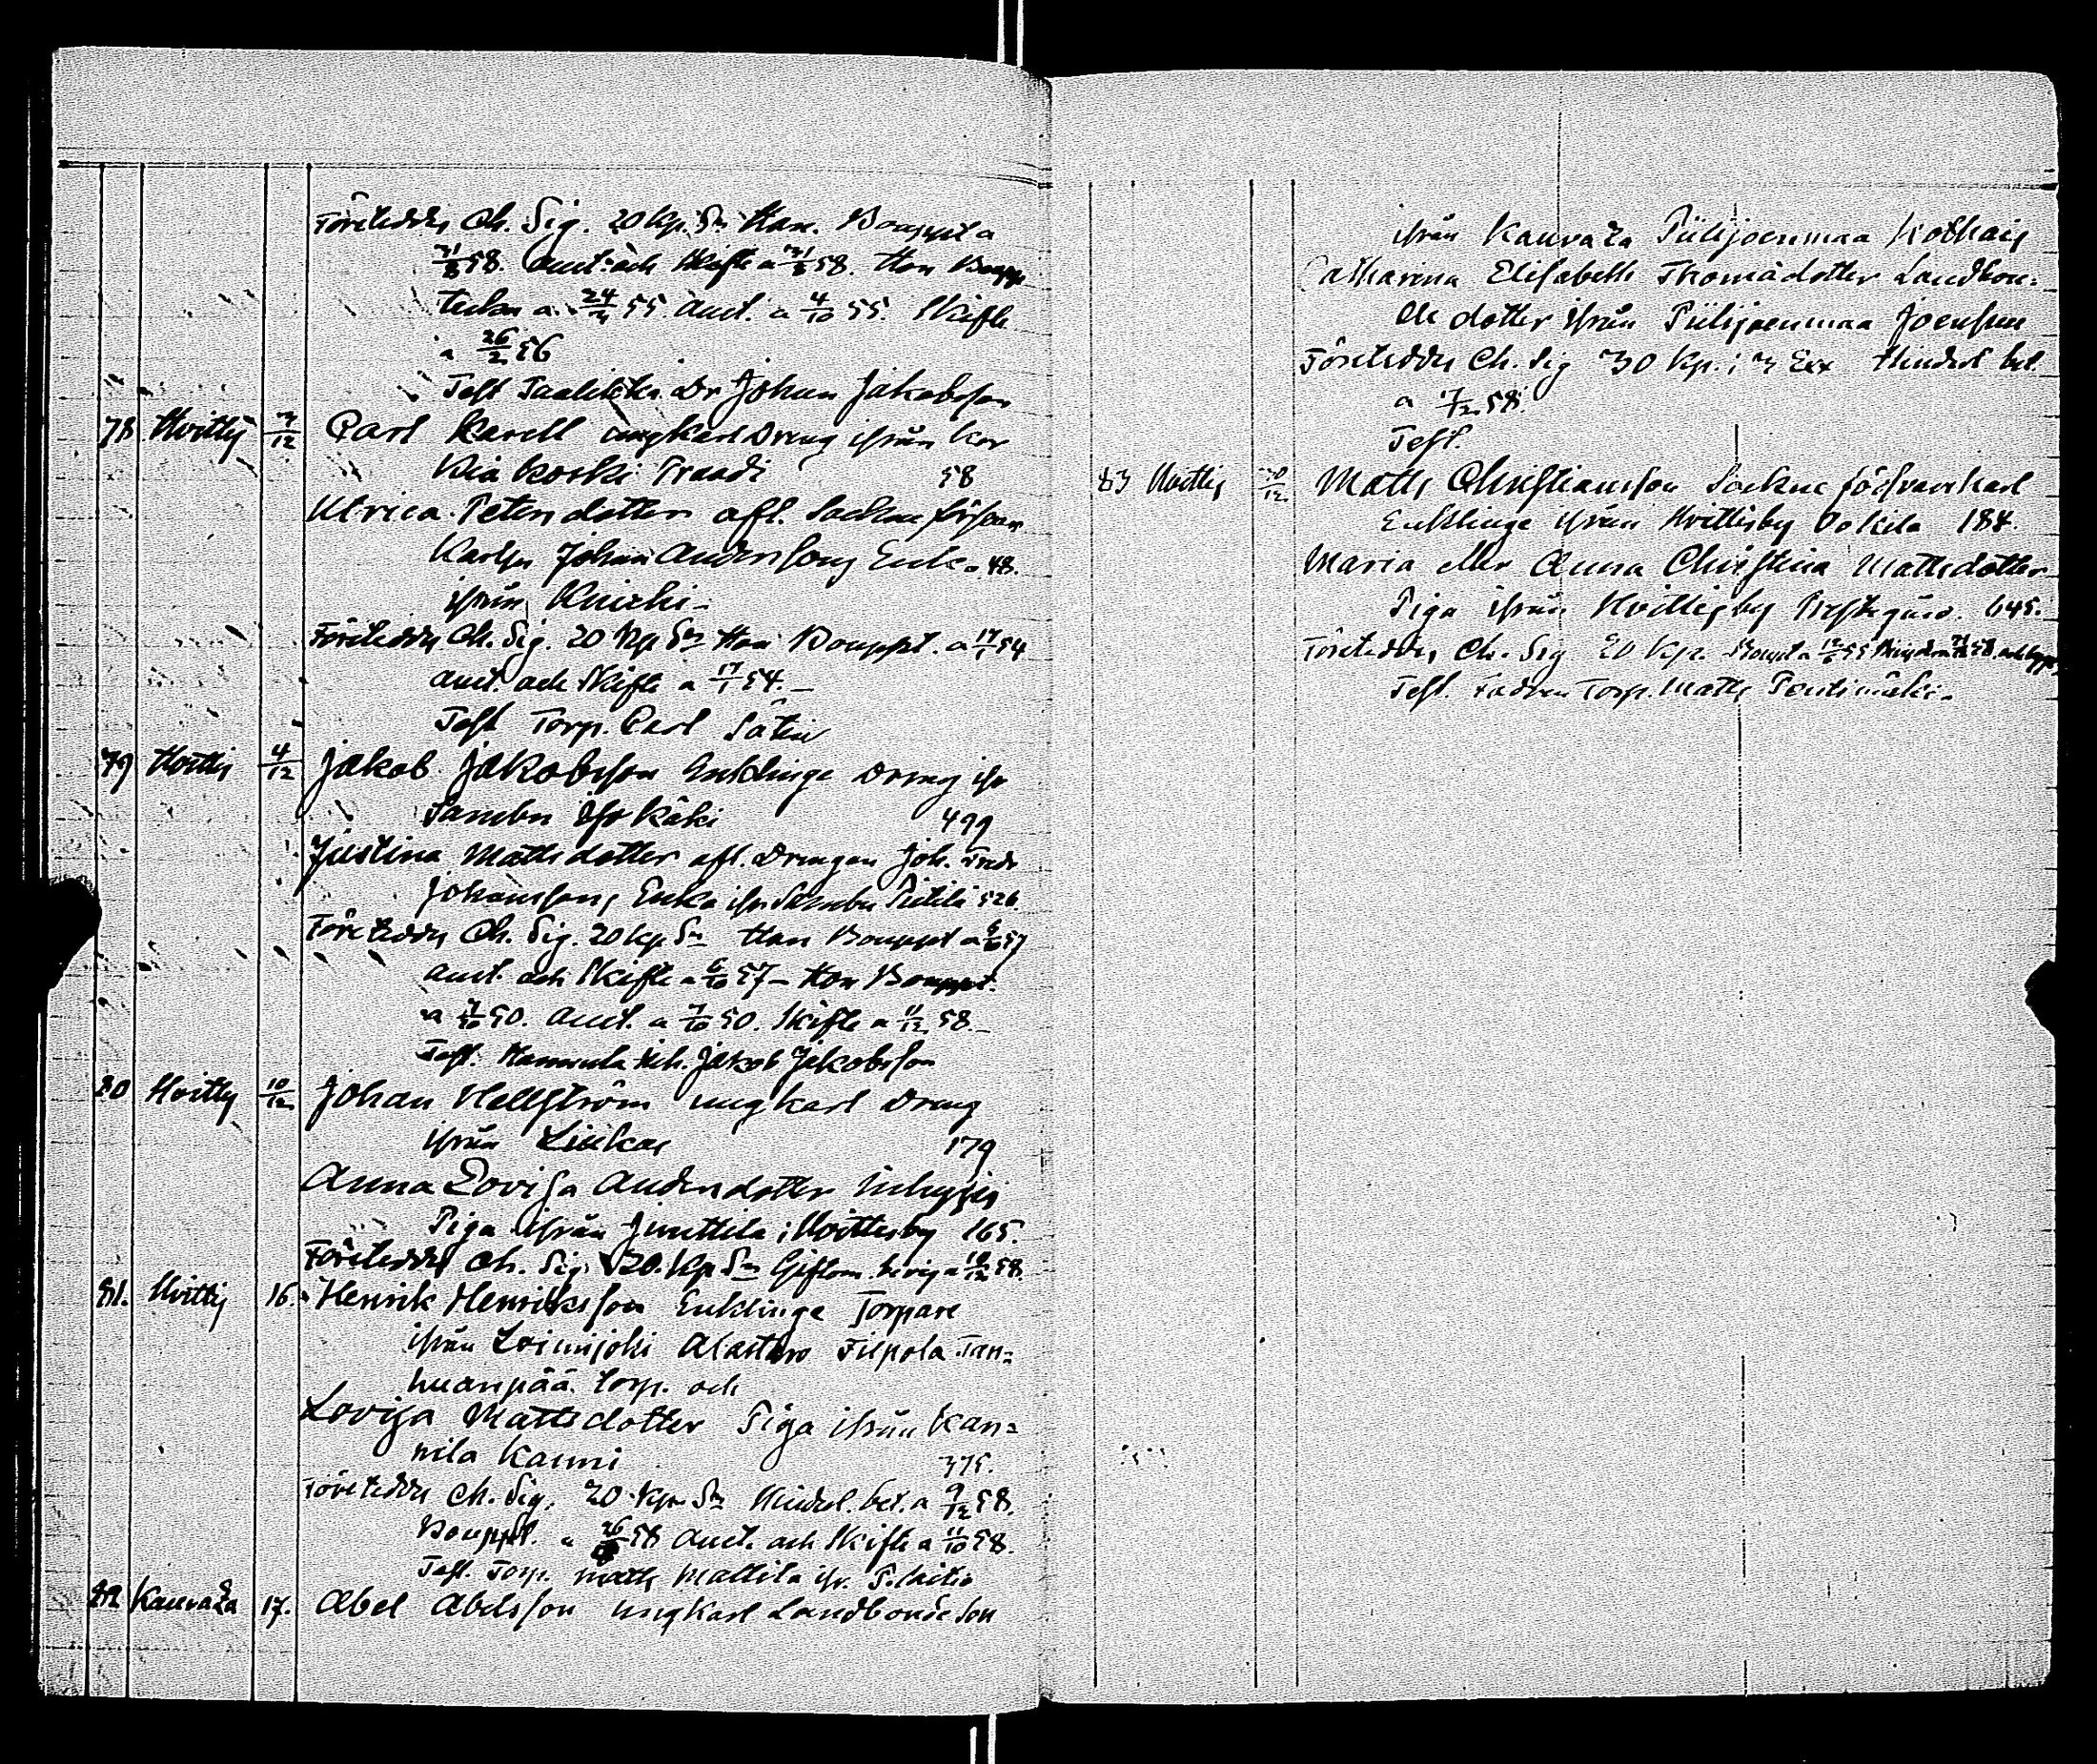 Företeddes Ch. Sig. 20 Kp. Sr Han Bouppt a
31/8 58. auct. och Skifte a 31/8 58. Hon Boupp
a 24/4 55. auct. a 4/10 55. Skifte
a 26/2 56
Test Johan Jakobsson
78 Hvittis 3/12 Carl Karell ungkarl Dreng ifrån Kar
kiakoski Praadi 58
Ulrica Petersdotter afl. Sockne
Johan Anderssons Enka 48.
ifrån
Företeddes Ch. Sig. 20 Kp Sr Han Bouppt. a 17/1 54
auct. och Skifte a 17/1 54.
Test Torp. Carl Säteri
79 Hvittis 4/12 Jakob Jakobsson Enklinge Dreng ifr
Sambu Iso Käki 499
Justina Mattsdotter afl. Drengen Joh. Fredr
Johanssons Enka ifr Sambu Pietilä 526.
Företeddes Ch. Sig. 20 Kp Sr Han Bouppt a 6/10 57
auct. och Skifte a 6/10 57 – Hon Bouppt.
a 7/10 50. auct. a 7/10 50. Skifte a 11/12 58.
Test. Hannula Jakob Jakobsson
80 Hvittis 10/12 Johan Hellström ungkarl Dreng
ifrån Linkas 179
Anna Lovisa Andersdotter Inhyses
Piga ifrån Junttila i Hvittisby 165.
Företeddes Ch. Sig. 20. Kp Sr Giftom. bevis a 10/12 58.
81. Hvittis 16. Henrik Henriksson Enklinge Torpare
ifrån Loimijoki Alastaro Filpola Tan=
huanpää torp. och
Lovisa Mattsdotter Piga ifrån Kan=
nila Kauni 375.
Företeddes Ch. Sig. 20 Kp Sr Hindsl. bet. a 9/12 58.
Bouppt. a 58 auct. och Skifte a 11/10 58.
Test. Torp. Matts Mattila ifr.
82 Kauvatsa 17. Abel Abelsson ungkarl Landbonde son
ifrån Kauvatsa Piilijoenmaa
Catharina Elisabeth Thomadotter Landbon=
de dotter ifrån Piilijoenmaa Joensuu
Företeddes Ch. Sig 30 Kp. i 3 Exx Hindersl bet.
a 7/12 58.
Test.
83 Hvittis 30/12 Matts Christiansson Sockne
Enklinge ifrån Hvittisby 184.
Maria eller Anna Christina Mattsdotter
Piga ifrån Hvittisby Prestgård 645.
Företeddes Ch. Sig 20 Kp.
Test. Fadren Torp. Matts Pentimäki